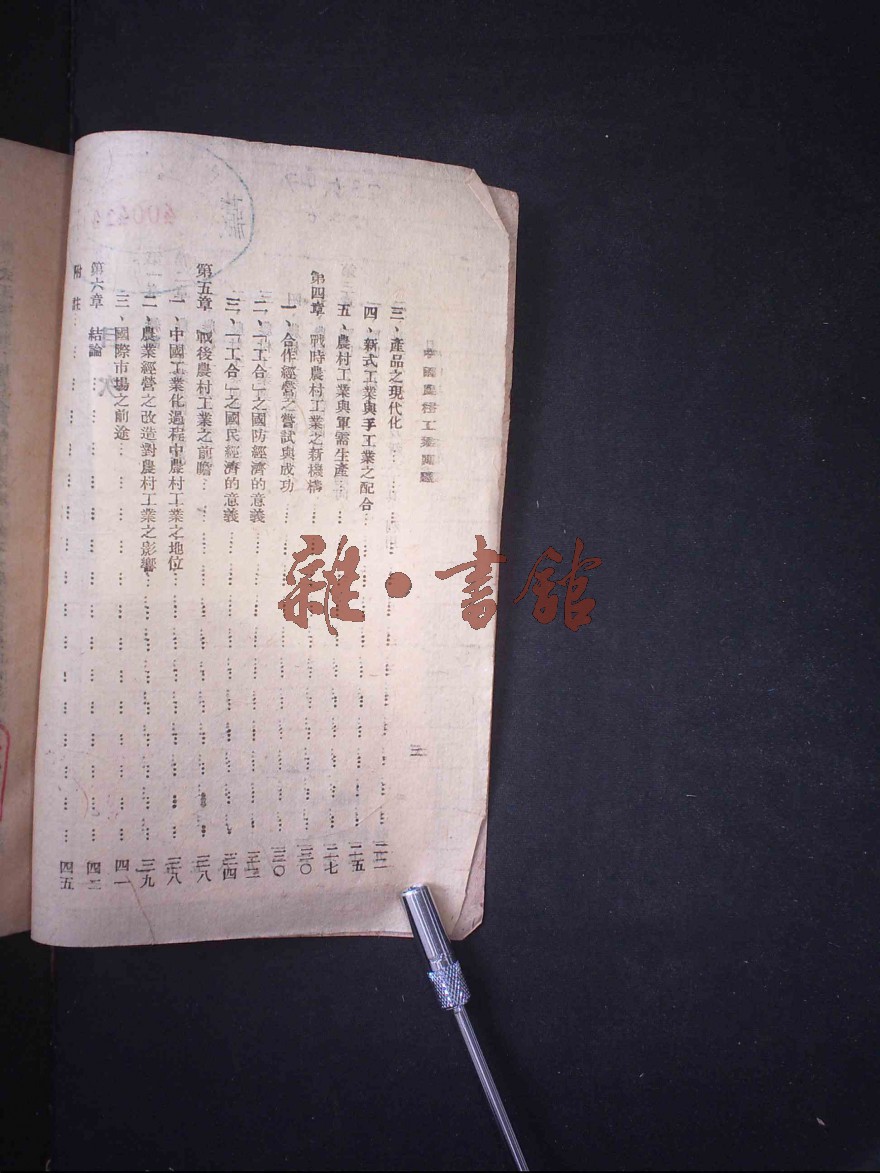 中國農村工業問題
二
三、產品之現代化……二二
四、新式工業與手工業之配合……二五
五、農村工業與軍需生產……二七
第四章 戰時農村工業之新機構……三〇
一、合作經營之嘗試與成功……三〇
二、「工合」之國防經濟的意義……三二
三、「工合」之國民經濟的意義……三四
第五章 戰後農村工業之前瞻……三八
一、中國工業化過程中農村工業之地位……三八
二、農業經營之改造對農村工業之影響……三九
三、國際市場之前途……四一
第六章 結論……四二
附註……四五
藏
雜·書館